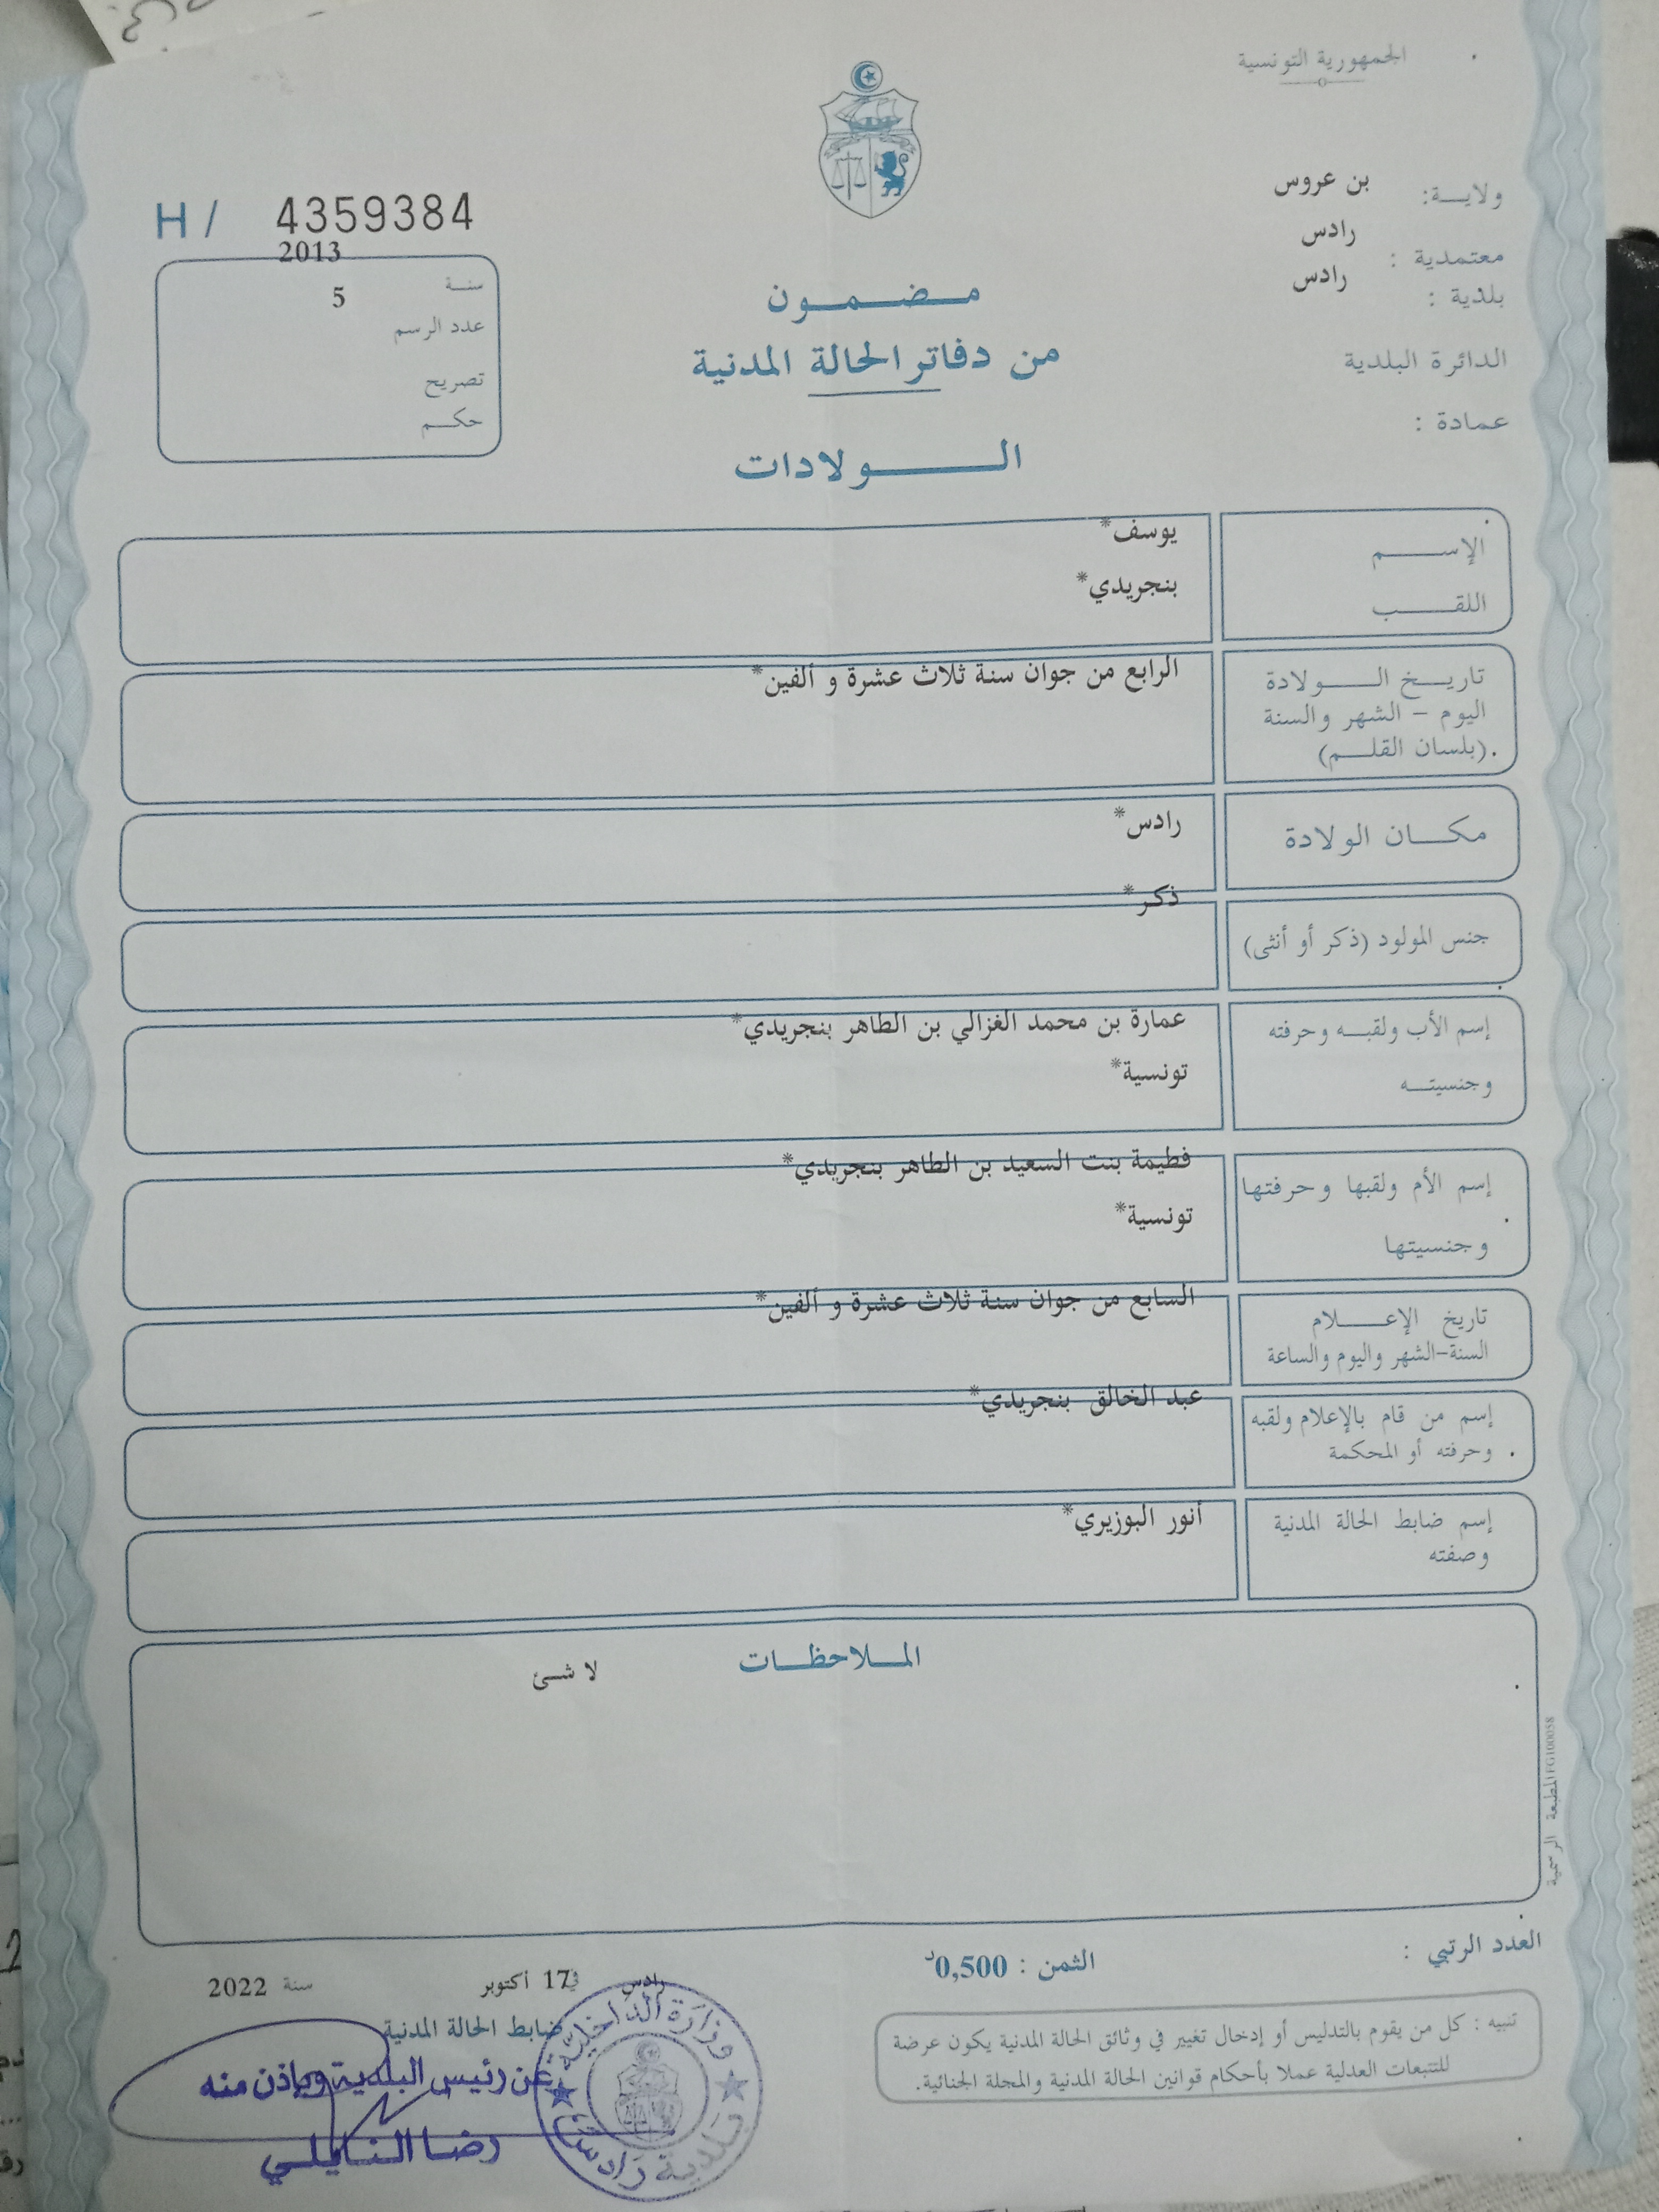 الجمهورية التونسية
ولايــة: بن عروس
معتمدية : رادس
بلدية : رادس
الدائرة البلدية
عمادة :
H / 4359384
سنــة 2013
عدد الرسم 5
تصريح
حكــم
مـضـمـون
من دفاتر الحالة المدنية
الـولادات
الإســم يوسف*
اللقــب بنجريدي*
تاريـخ الـولادة الرابع من جوان سنة ثلاث عشرة و ألفين*
اليوم – الشهر والسنة
(بلسان القلـم).
مكـان الولادة رادس*
جنس المولود (ذكر أو أنثى) ذكر*
إسم الأب ولقبـه وحرفته عمارة بن محمد الغزالي بن الطاهر بنجريدي*
وجنسيتـه تونسية*
إسم الأم ولقبها وحرفتها فطيمة بنت السعيد بن الطاهر بنجريدي*
وجنسيتها تونسية*
تاريخ الإعـلام السابع من جوان سنة ثلاث عشرة و ألفين*
السنة-الشهر واليوم والساعة
إسم من قام بالإعلام ولقبه عبد الخالق بنجريدي*
وحرفته أو المحكمة
إسم ضابط الحالة المدنية أنور البوزيري*
وصفته
المـلاحظـات
لا شئ
المطبعة الرسمية FG100058
العدد الرتبي :
الثمن : 0,500د
رادس في 17 أكتوبر سنة 2022
ضابط الحالة المدنية
عن رئيس البلدية وبإذن منه
رضا النايلي
وزارة الداخلية
بلدية رادس
تنبيه : كل من يقوم بالتدليس أو إدخال تغيير في وثائق الحالة المدنية يكون عرضة
للتتبعات العدلية عملا بأحكام قوانين الحالة المدنية والمجلة الجنائية.